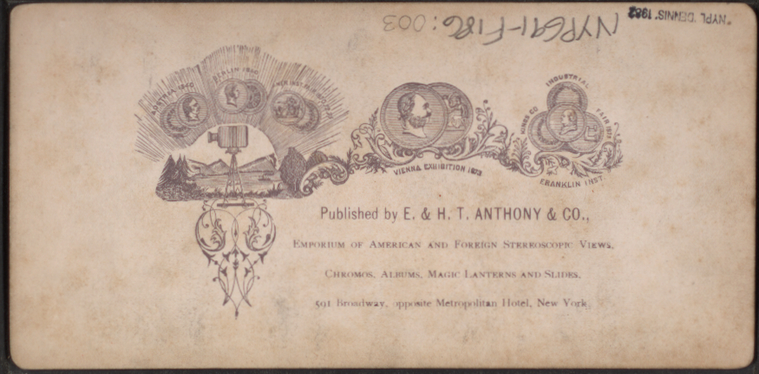 "NYPL DENNIS" 1982
NYPG91-F186:003
AUSTRIA 1840
BERLIN 1866
VIENNA EXHIBITION 1873
INDUSTRIAL
FAIR
FRANKLIN INST.
Published by E. & H. T. ANTHONY & CO.,
EMPORIUM OF AMERICAN AND FOREIGN STEREOSCOPIC VIEWS,
CHROMOS, ALBUMS, MAGIC LANTERNS AND SLIDES,
591 Broadway, opposite Metropolitan Hotel, New York